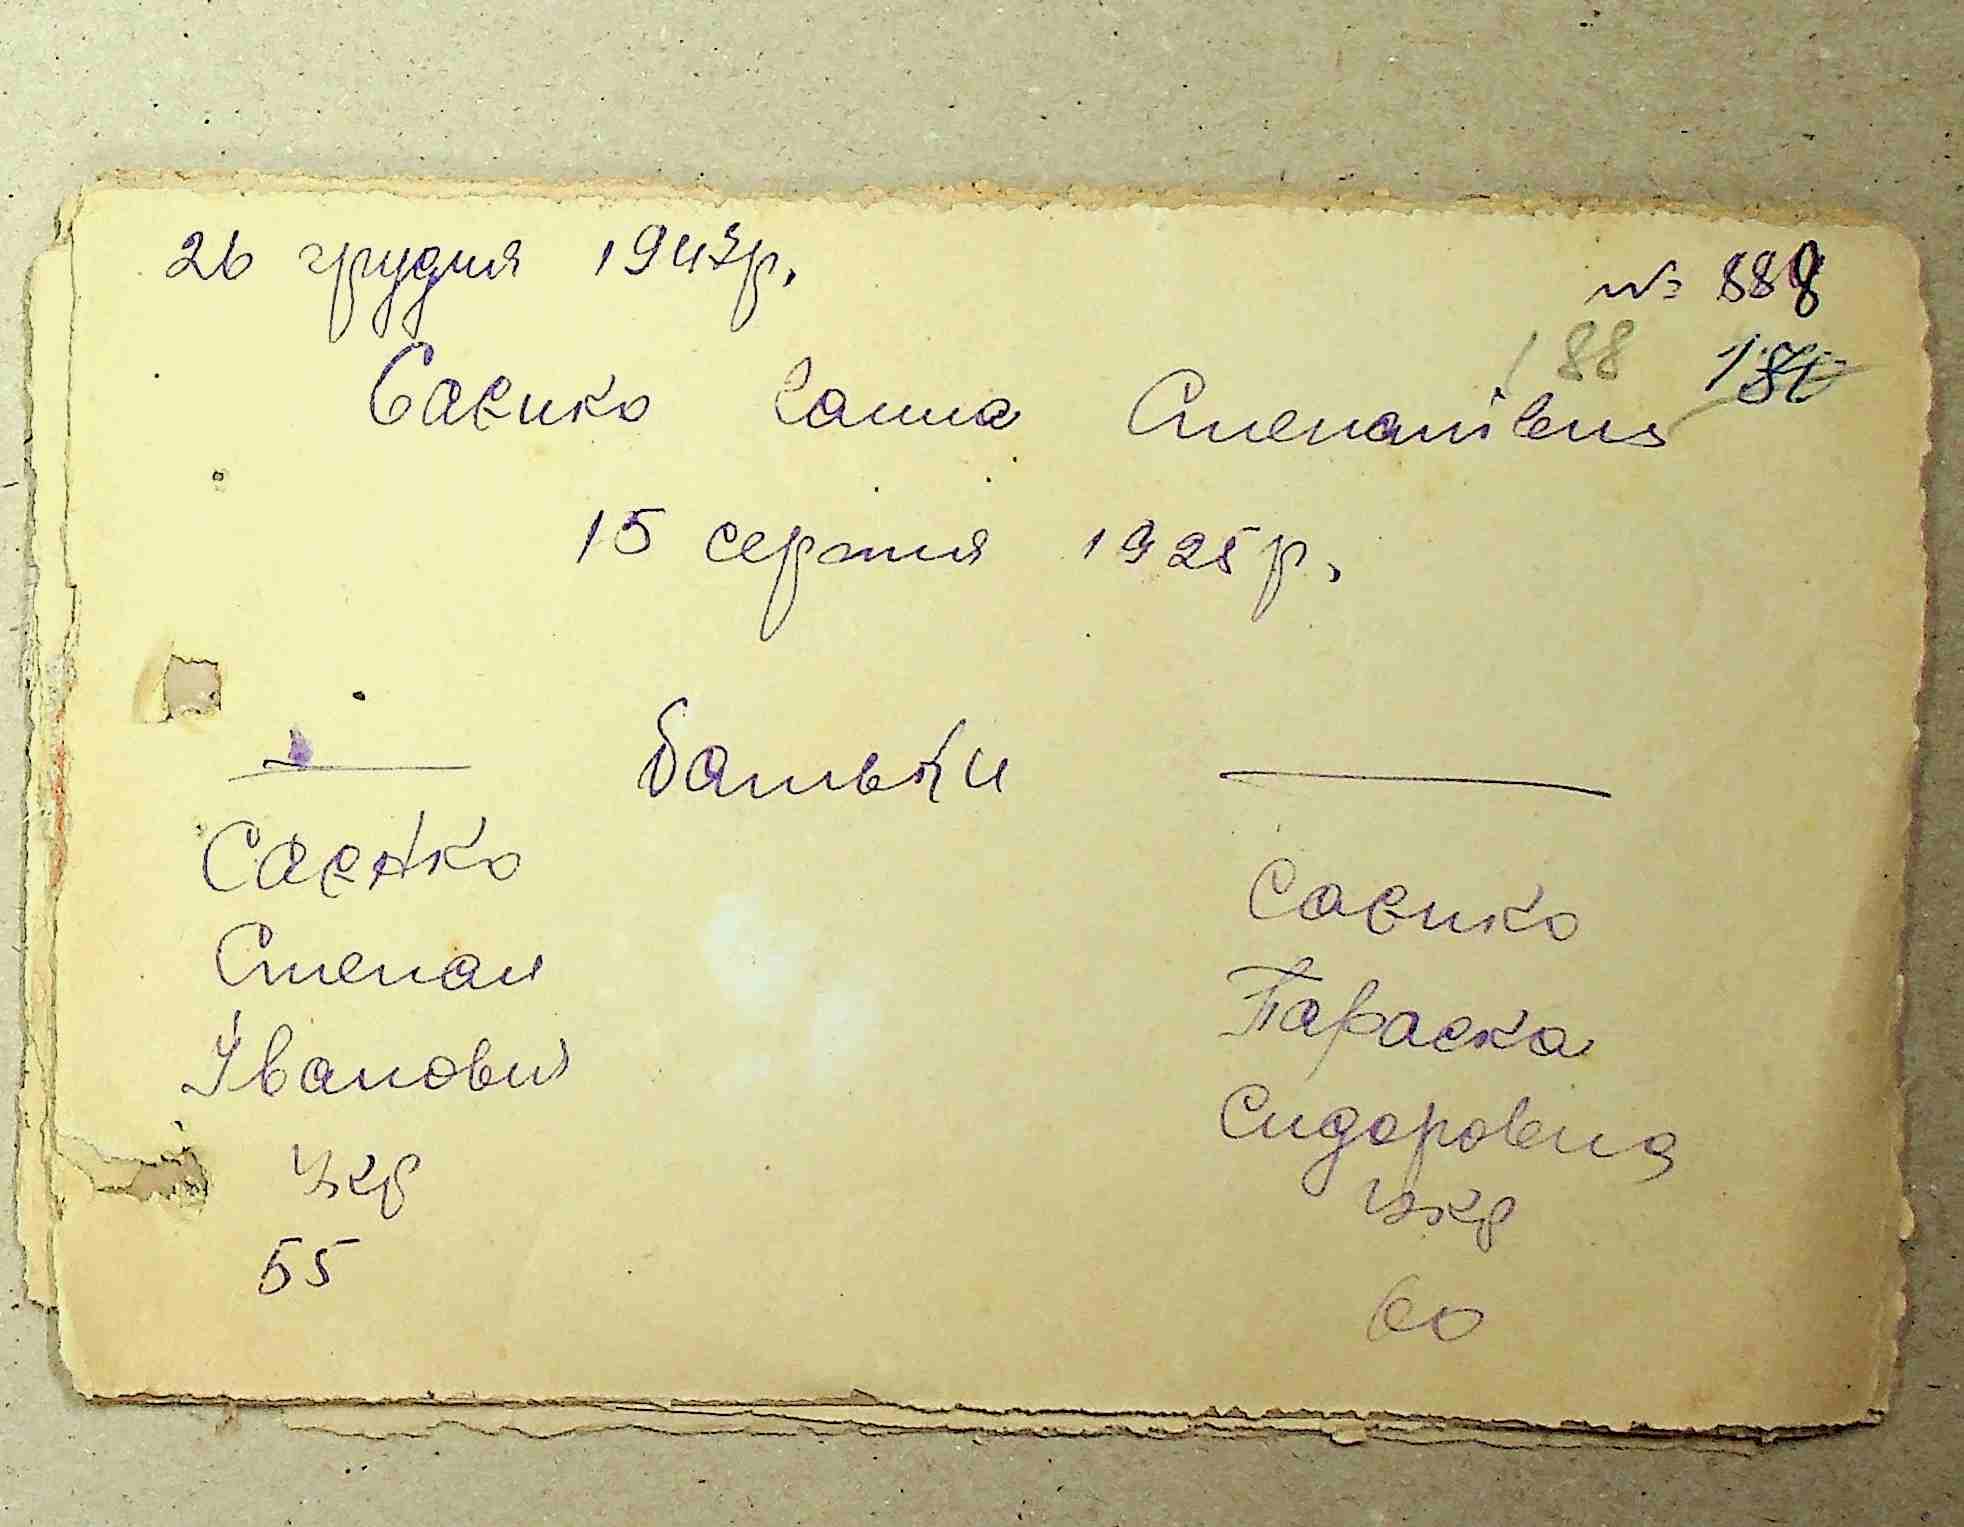 26 грудня 1943р.
№ 888
188
Саєнко Ганна Степанівна
15 серпня 1925р.
Батьки
Саєнко
Степан
Іванович
Укр
55
Саєнко
Параска
Сидоровна
Укр
60